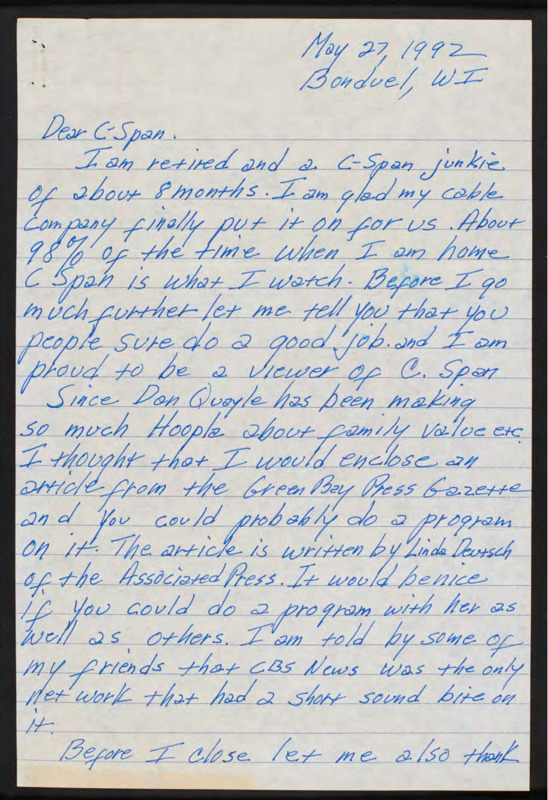 May 27, 1992
Bonduel, WI
Dear C-Span.
I am retired and a C-Span junkie
of about 8 months. I am glad my cable
Company finally put it on for us. About
98% of the time when I am home
C Span is what I watch. Before I go
much further let me tell you that you
people sure do a good job. and I am
proud to be a viewer of C. Span
Since Dan Quayle has been making
so much Hoopla about family value etc.
I thought that I would enclose an
article from the Green Bay Press Gazette
and you could probably do a program
on it. The article is written by Linda Deutsch
of the Associated Press. It would be nice
if you could do a program with her as
well as others. I am told by some of
my friends that CBS News was the only
net work that had a short sound bite on
it.
Before I close let me also thank